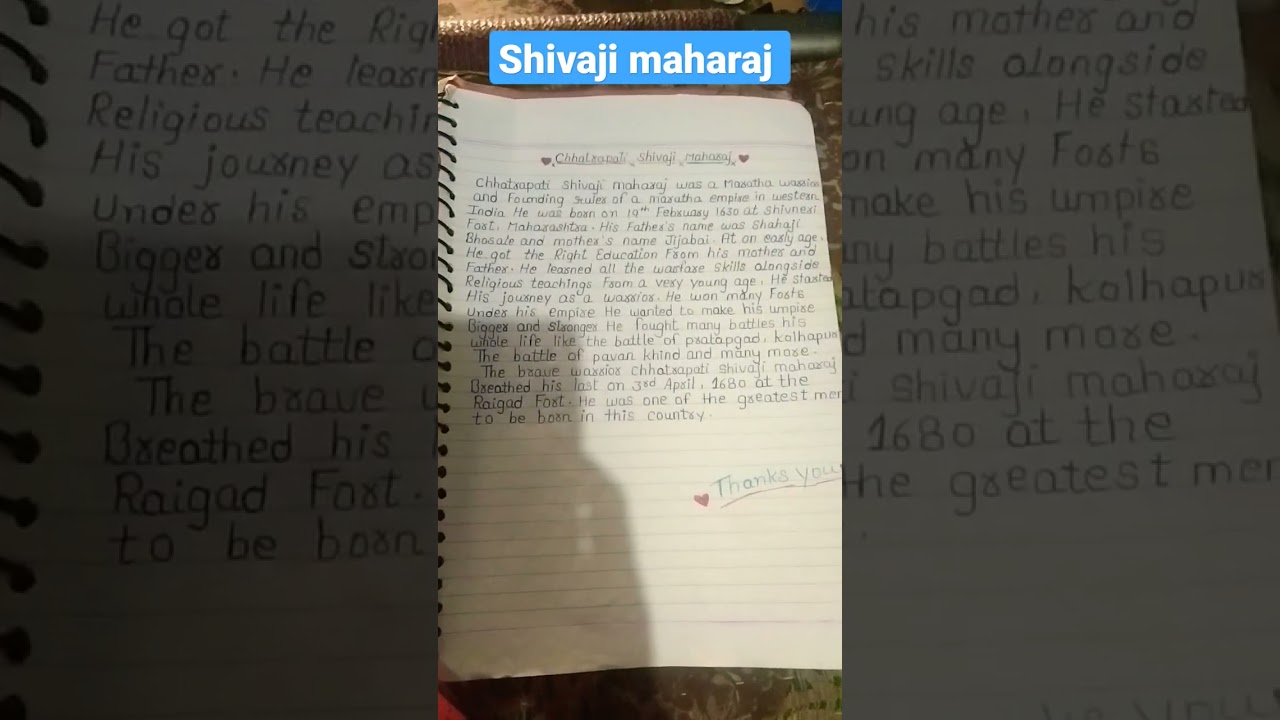 Shivaji maharaj
Chhatrapati Shivaji Maharaj
Chhatrapati Shivaji maharaj was a Maratha warrior
and Founding ruler of a maratha empire in western
India He was born on 19th February 1630 at Shivneri
Fort, Maharashtra. His Father's name was Shahaji
Bhosale and mother's name Jijabai. At on early age,
He got the Right Education From his mother and
Father. He learned all the warfare skills alongside
Religious teachings From a very young age, He started
His journey as a warrior. He won many Forts
Under his empire He wanted to make his umpire
Bigger and stronger He fought many battles his
whole life like the battle of pratapgad, kolhapur
The battle of pavan khind and many more.
The brave warrior chhatrapati Shivaji maharaj
Breathed his last on 3rd April, 1680 at the
Raigad Fort. He was one of the greatest men
to be born in this country.
Thanks you